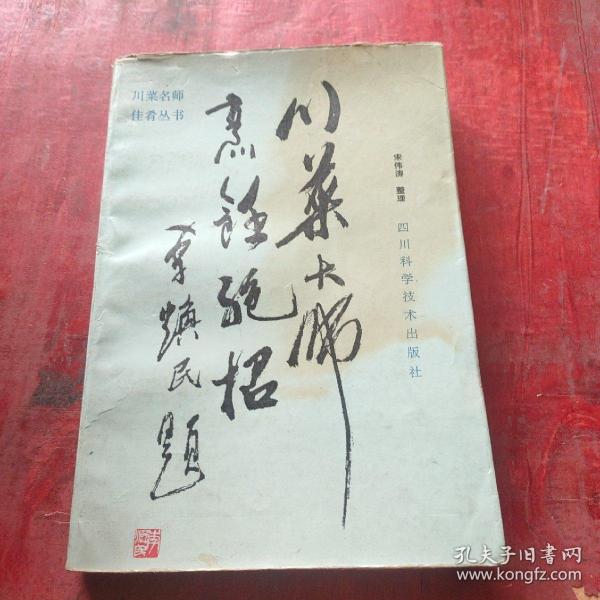 川菜名师
佳肴丛书
川菜大师
烹饪绝招
李焕民
题
宋伟涛 整理
四川科学技术出版社
孔夫子旧书网
www.kongfz.com